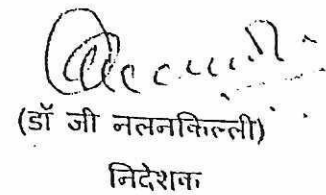 (डॉ जी नलनकिल्ली)
निदेशक